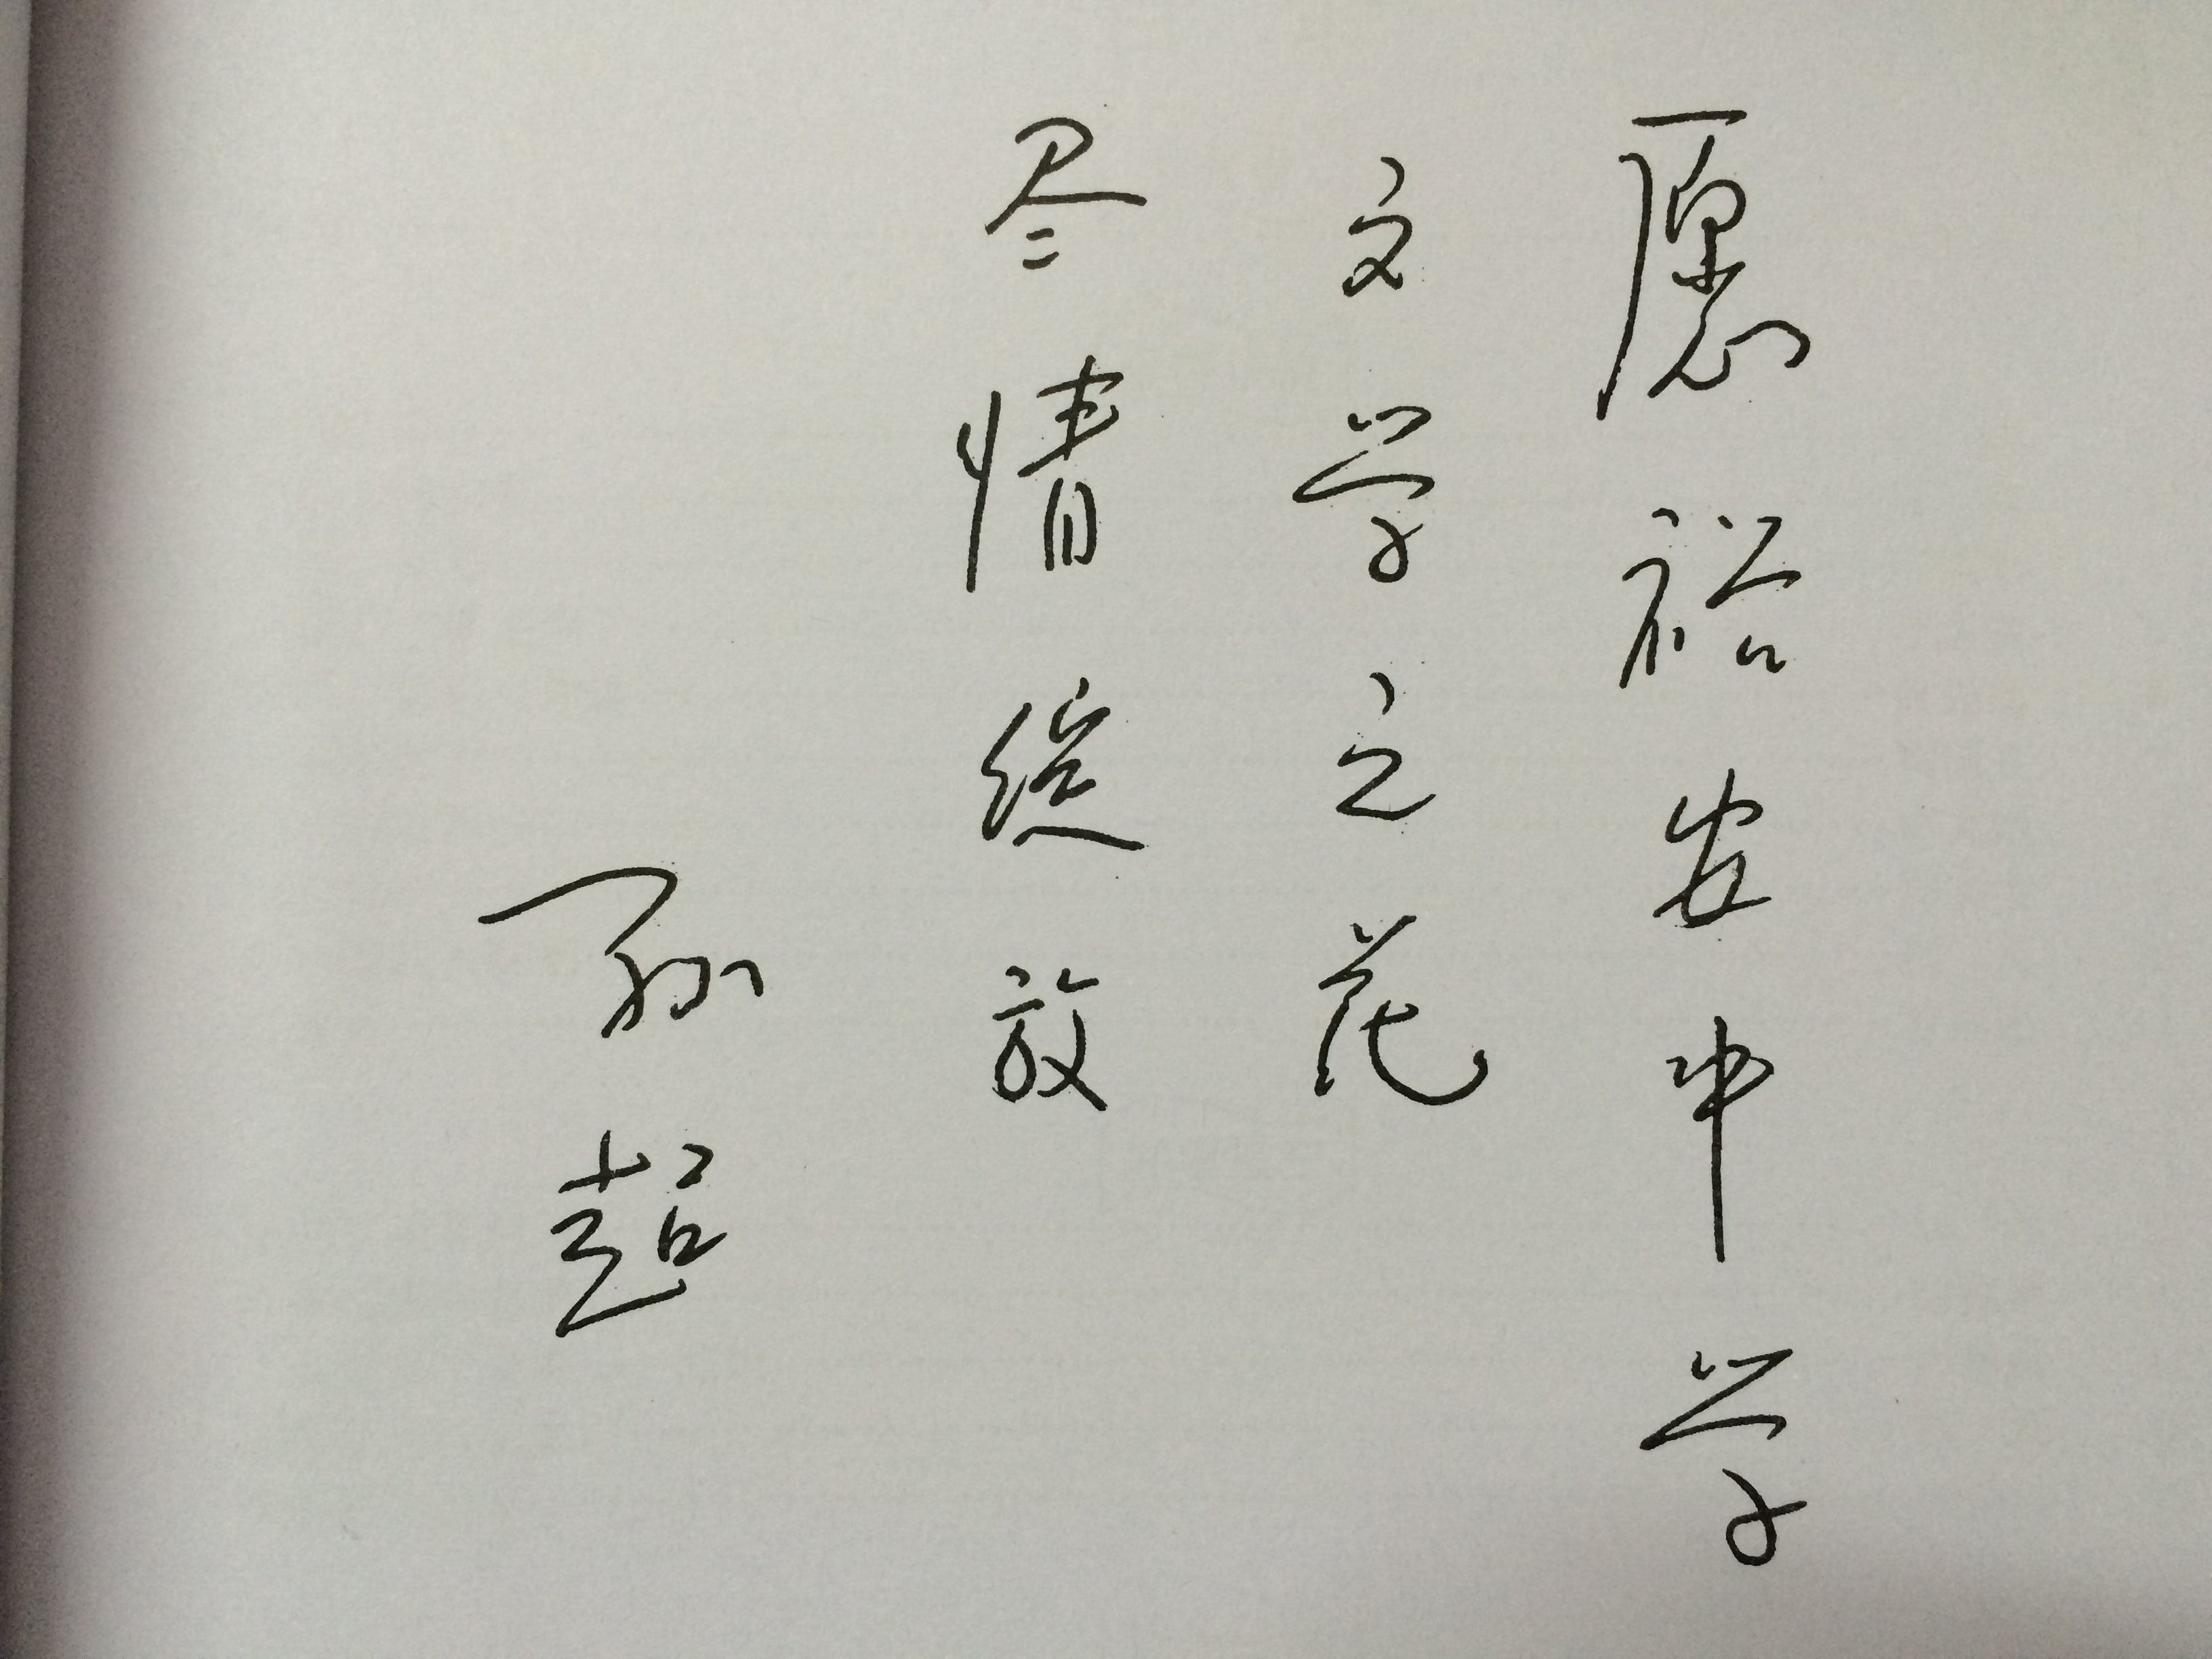 愿裕安中学
文学之花
尽情绽放
孙超